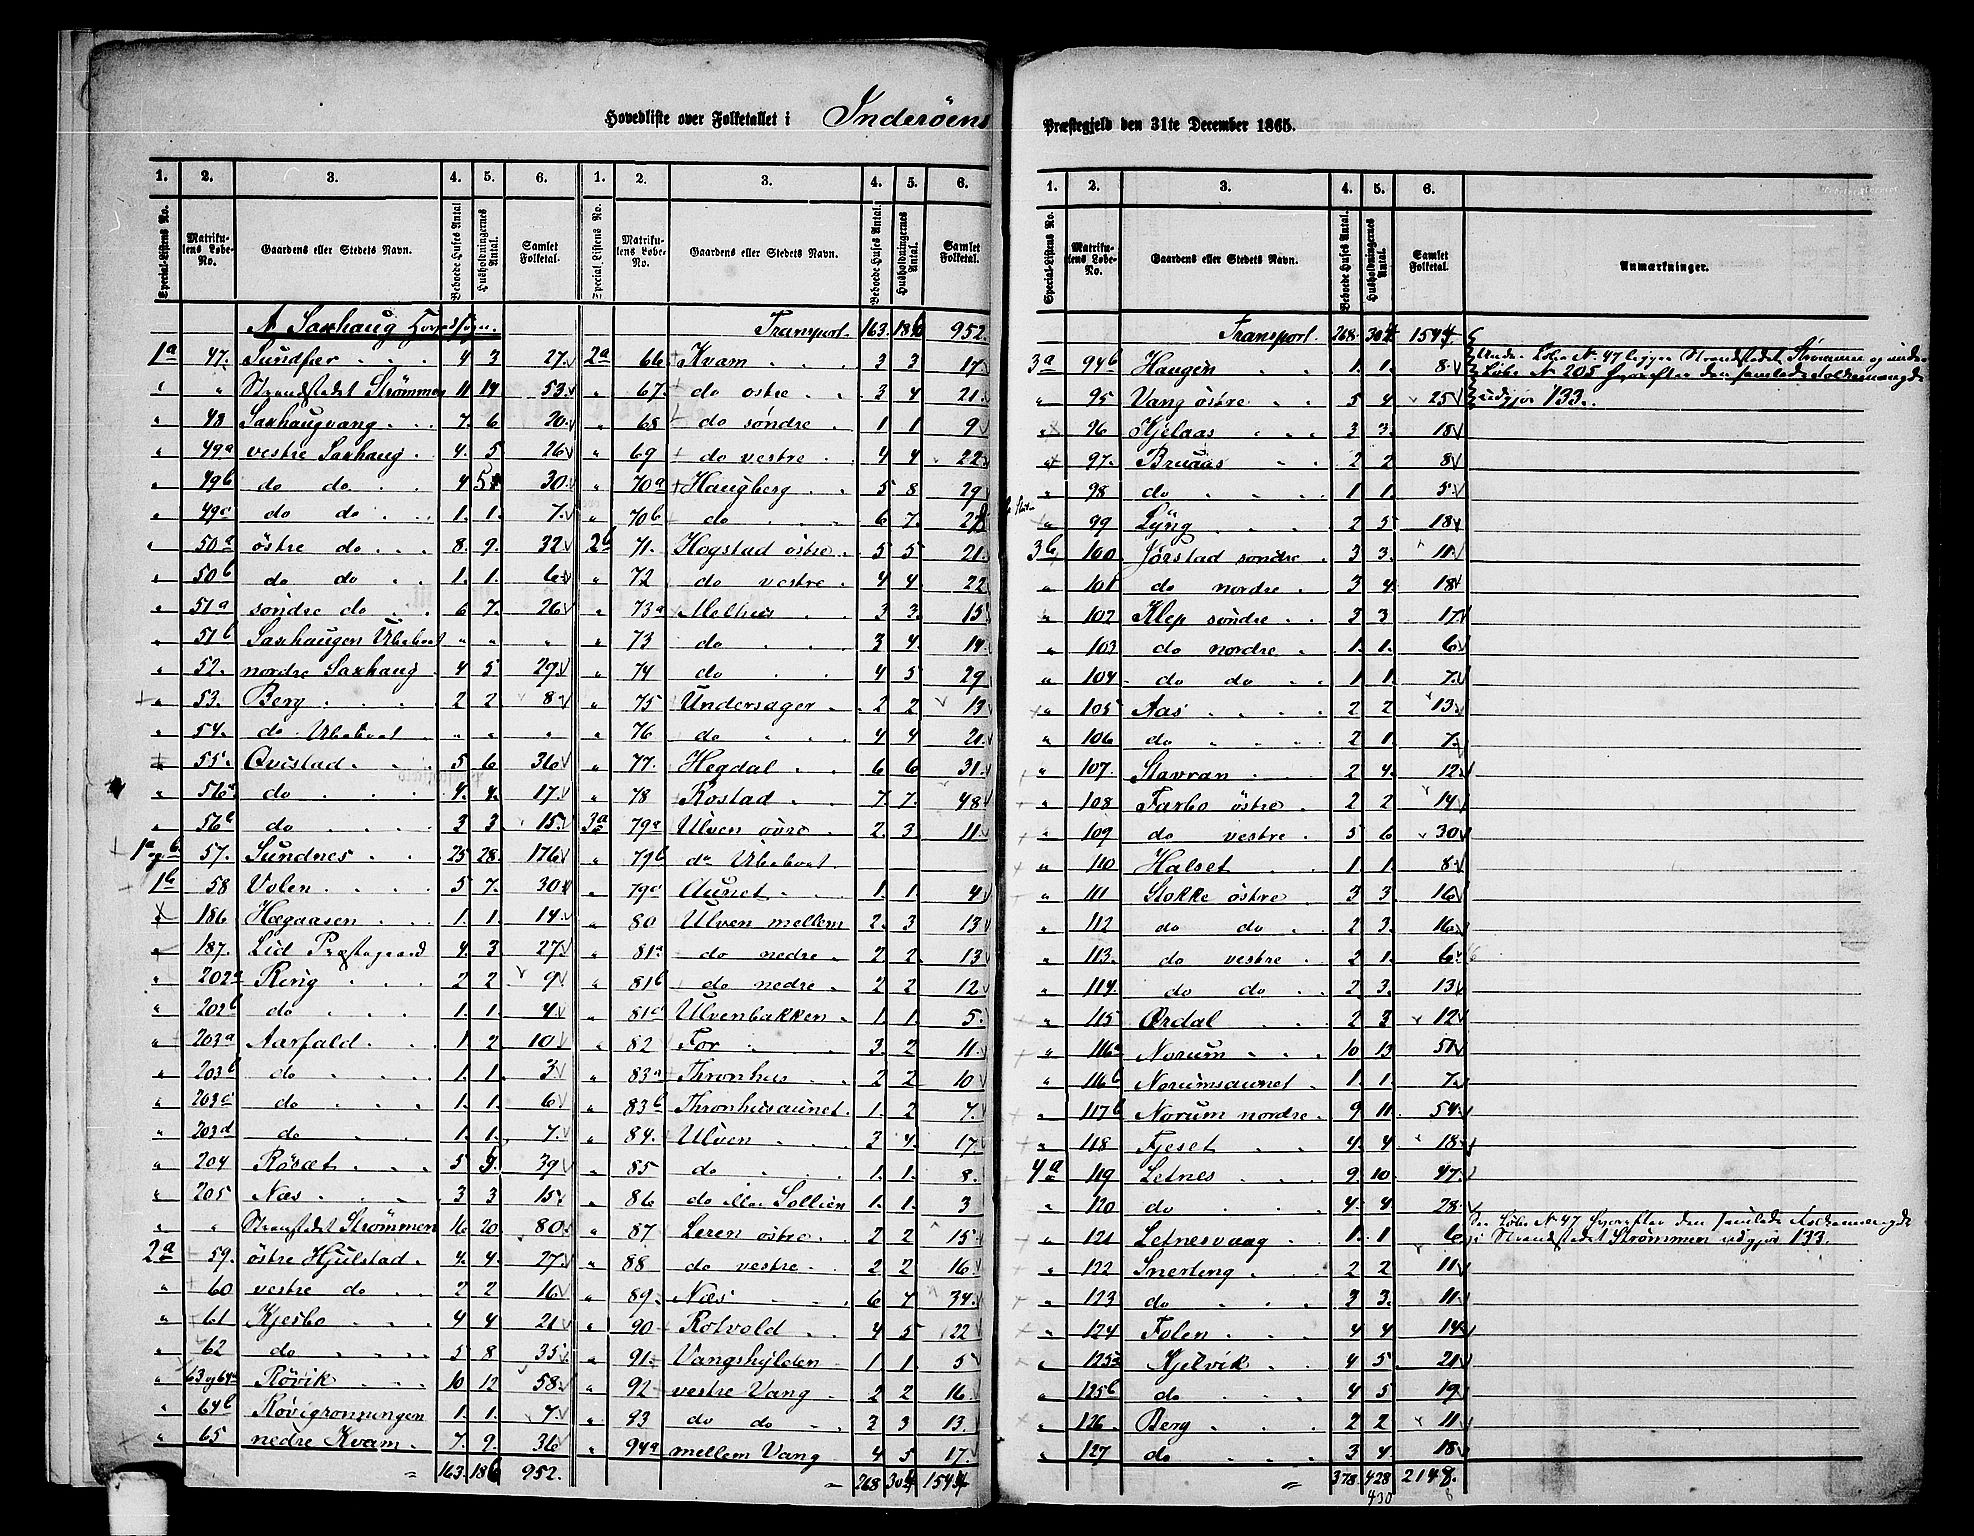 Hovedliste over Folketallet i Inderöens
Præstegjeld den 31te December 1865.
1. 2. 3. 4. 5. 6. 1. 2. 3. 4. 5. 6.
Special-Listens No. Matrikulens Løbe-No. Gaardens eller Stedets Navn. Beboede Huses Antal Husholdningernes Antal. Samlet Folketal. Special-Listens No. Matrikulens Løbe-No. Gaardens eller Stedets Navn. Beboede Huses Antal. Husholdningernes Antal. Samlet Folketal.
A Saxhaug Hovedsogn. Transport. 163. 186 952.
1a 47. Sundfær 4 3 27. 2a 66 Kvam 3 3 17
" " Strandstedet Strømmen 11 14 53. " 67. do ostre 3 4 21.
" 48 Saxhaugvang 7. 6 20. " 68 do søndre 1 1 9
" 49a vestre Saxhaug 4. 5 26 " 69 do vestre 4 4 22
" 49b do do 4 5 30. " 70a Haugberg 5 8 29
" 49c do do 1. 1. 7. " 70b do 6 7. 28
" 50a östre do 8. 9. 32 2b 71. Hogstad östre 5 5 21.
" 50b do do 1. 1. 6 " 72 do vestre 4 4. 22
" 51a søndre do 6 7. 26 " 73a Melhus 3 3. 15
" 51b Saxhaugen Ubeboet " " " " 73 do 3 4. 14.
" 52. nordre Saxhaug 4 5 27. " 74 do 4 5 29
" 53. Berg 2 2 8 " 75 Undersager 2 2 13
" 54. do Ubeboet " " " " 76 do 4 4 21.
" 55. Quistad 5 6 36 " 77. Hegdal 6 6 31.
" 56a do 4. 4. 17. " 78 Rostad 7. 7. 48
" 56b do 3 3. 15. 3a 79a Ulven øvre 2. 3 11
1a og b 57. Sundnes 25 28. 176 " 79b do Ubeboet
1b 58 Volen 5 7. 30 " 79c Aunet 1. 1. 4
" 186 Hægaasen 1. 1. 14. " 80 Ulven mellem 2. 3 13
" 187. Lid Præstegaard 4. 3 27 " 81a do nedre 2 2. 13
" 202a Ring 2 2 9 " 81b do nedre 2 2 12
" 202b do 1. 1. 4 " 81c Ulvenbakken 1. 1. 5.
" 203a Aarfald 1. 2 10 " 82 For 3. 2 11.
" 203b do 1. 1. 3 " 83a Thronhus 2 2 10
" 203c do 1. 1. 6 " 83b Thronhusaunet 1. 2 7.
" 203d do 1. 1. 7. " 84. Ulven 3 4. 17.
" 204 Rösæt 5 5. 39 " 85 do 1. 1. 8.
" 205 Næs 3 3 15 " 86 do eller Sollien 1. 1. 3
" " Strandstedet Strømmen 16 20 80 " 87 Leren östre 2 2 15
2a 59. östre Hjulstad 4. 4. 27. " 88 do vestre 2 2 16
" 60 vestre do 2 2 16 " 89. Næs 6 7 34.
" 61 Kjesbo 4 4 21 " 90 Rotvold 4 5 22
" 62 do 5 8 35 " 91. Vangshylden 1 1. 5
" 63 og 64a Rövik 10 12 58 " 92 vestre Vang 2 2 16
" 64b Rövigrønningen 1 1. 7. " 93 do do 2 3 13
" 65 nedre Kvam 7. 9. 36 " 94a mellem Vang 4 5 17.
163. 186 952. 268 304 1544
1. 2. 3. 4. 5. 6.
Special-Listens No. Matrikulens Løbe-No. Gaardens eller Stedets Navn. Beboede Huses Antal. Husholdningernes Antal. Samlet Folketal. Anmærkninger.
Transport. 268. 304 1544
3a 94b Haugen 1. 1. 8. Under Løbe No 47 ligger Strandstedet Strømmen og under
Løbe No 205 hvorefter den samlede Folkemængde
" 95 Vang östre 5 4 25 udgjør 133.
" 96 Kjelaas 3 3. 18
" 97. Bruaas 2 2 8
" 98 do 1 1. 5
" 99 Lyng 2 5 18
3b 100 Jørstad søndre 3 3. 11.
" 101 do nordre 3 4 18
" 102 Klep søndre 3 3 17
" 103 do nordre 1. 1. 6
" 104. do do 1 1. 7.
" 105 Aas 2 2 13.
" 106 do 2 1. 7.
" 107. Stavran 2 4. 12.
" 108 Farbo östre 2 2 14
" 109 do vestre 5 6 30
" 110 Halset 1. 1. 8
" 111 Stokke östre 3 3. 16
" 112 do do 2 3. 16
" 113. do vestre 2 1. 6
" 114. do do 2 3. 13
" 115 Ørdal 2 3 12
" 116a Norum 10 13 51
" 116b Norumsaunet 1. 1. 7.
" 117b Norum nordre 9 11. 54.
" 118 Fjeset 4. 4 18
4a 119 Letnes 9. 10. 47.
" 120 do 4. 4 28
Se Løbe No 47 hvorefter den samlede Folkemængde
" 121 Letnesvaag 1. 1 6 i Strandstedet Strømmen udgjør 133.
" 122 Snerting 2 2 11
" 123 do 3 3. 11.
" 124 Folen 4 4 14
" 125a Kjelvik 4 5. 21
" 125b do 4 5 19
" 126 Berg 2 2 11
" 127 do 3 4 18
378 428 2148.
430 8